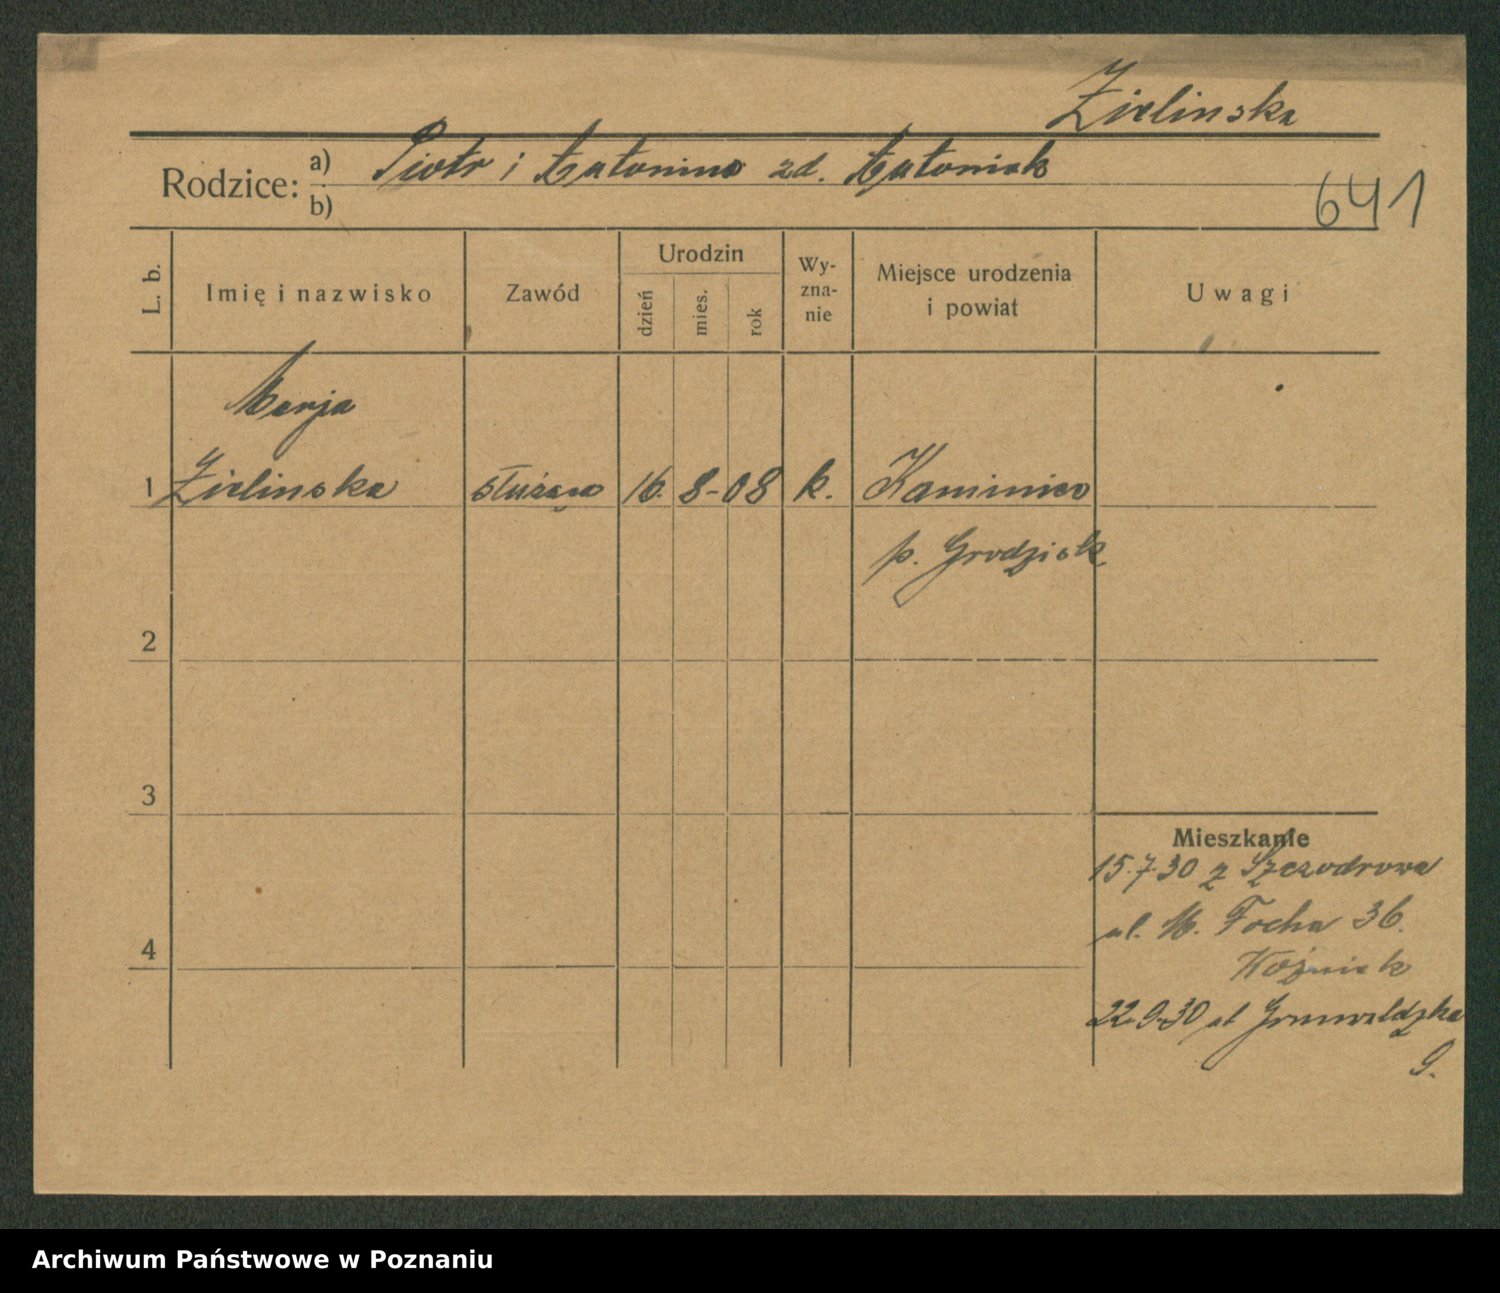 Zielinska
Rodzice: a) Piotr i Antonina zd. Antoniak
b)
641
L. b.
Imię i nazwisko
Zawód
Urodzin
dzień
mies.
rok
Wy-
zna-
nie
Miejsce urodzenia
i powiat
Uwagi
Marja
1 Zielinska służąca 16. 8-08 k. Kamieniec
p. Grodzisk
2
3
4
Mieszkanie
15.7.30 z Szczodrowa
ul. M. Focha 36.
Woźniak
22.9.30 ul Grunwaldzka
9.
Archiwum Państwowe w Poznaniu